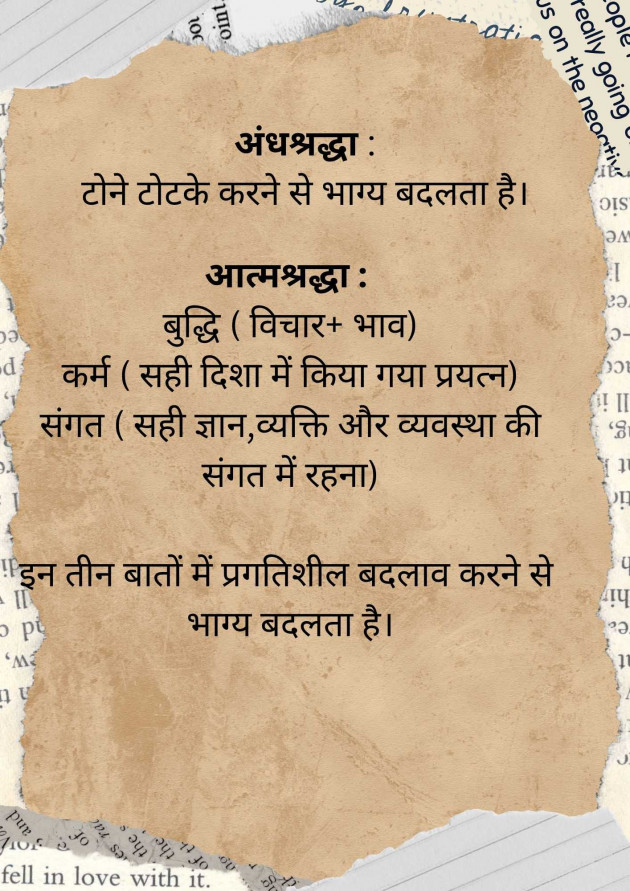 अंधश्रद्धा :
टोने टोटके करने से भाग्य बदलता है।
आत्मश्रद्धा :
बुद्धि ( विचार+ भाव)
कर्म ( सही दिशा में किया गया प्रयत्न)
संगत ( सही ज्ञान,व्यक्ति और व्यवस्था की
संगत में रहना)
इन तीन बातों में प्रगतिशील बदलाव करने से
भाग्य बदलता है।
fell in love with it.